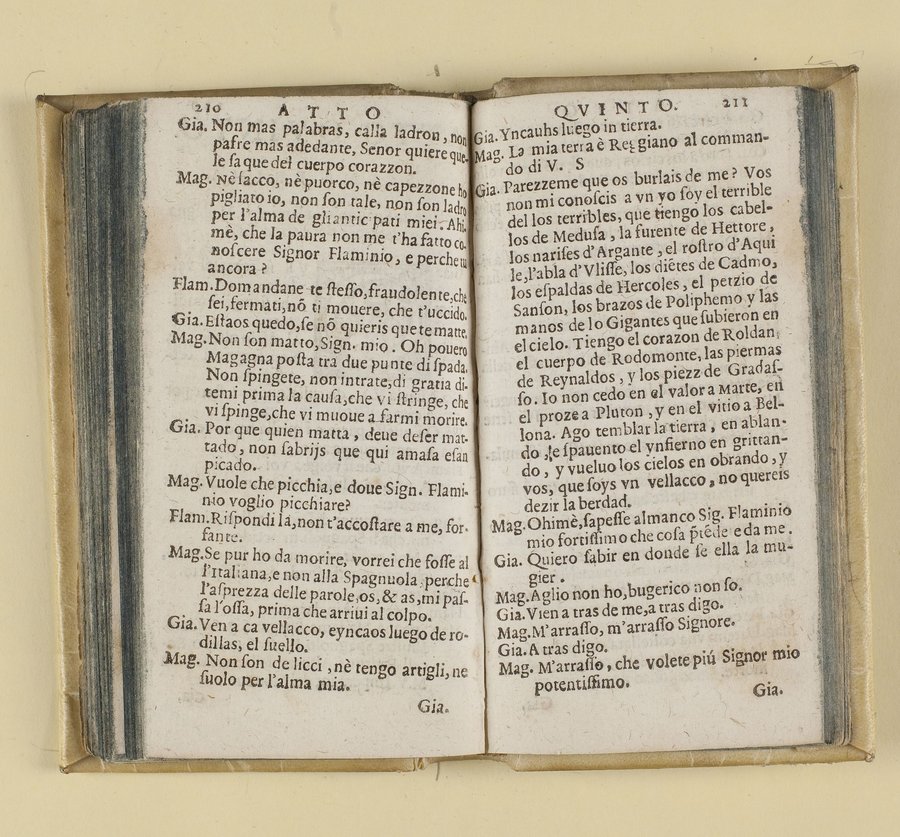 210 ATTO
Gia. Non mas palabras, calla ladron, non
paſre mas adedante, Senor quiere que
le ſaque del cuerpo corazzon.
Mag. Nè ſacco, nè puorco, nè capezzone ho
pigliato io, non ſon tale, non ſon ladro
per l'alma de gliantic pati miei. Ahi
mè, che la paura non me t'ha fatto co-
noſcere Signor Flaminio, e perche tu
ancora?
Flam. Domandane te ſteſſo, fraudolente, che
ſei, fermati, nõ ti mouere, che t'uccido.
Gia. Eſtaos quedo, ſe nõ quieris que te matte.
Mag. Non ſon matto, Sign. mio. Oh pouero
Magagna poſta trà due punte di ſpada.
Non ſpingete, non intrate, di gratia di-
temi prima la cauſa, che vi ſtringe, che
vi ſpinge, che vi muoue a farmi morire.
Gia. Por que quien matta, deue deſer mat-
tado, non ſabrijs que qui amaſa eſan
picado.
Mag. Vuole che picchia, e doue Sign. Flami-
nio voglio picchiare?
Flam. Riſpondi là, non t'accoſtare a me, for-
fante.
Mag. Se pur ho da morire, vorrei che foſſe al
l'Italiana, e non alla Spagnuola perche
l'aſprezza delle parole, os, & as, mi paſ-
ſa l'oſſa, prima che arriui al colpo.
Gia. Ven a ca vellacco, eyncaos luego de ro-
dillas, el ſuello.
Mag. Non ſon de licci, nè tengo artigli, ne
ſuolo per l'alma mia.
Gia.
QVINTO. 211
Gia. Yncauhs luego in tierra.
Mag. La mia terra è Reggiano al comman-
do di V. S
Gia. Parezzeme que os burlais de me? Vos
non mi conoſcis a vn yo ſoy el terrible
del los terribles, que tiengo los cabel-
los de Meduſa, la furente de Hettore,
los nariſes d'Argante, el roſtro d'Aqui
le, l'abla d'Vliſſe, los diẽtes de Cadmo,
los eſpaldas de Hercoles, el petzio de
Sanſon, los brazos de Poliphemo y las
manos de lo Gigantes que ſubieron en
el cielo. Tiengo el corazon de Roldan,
el cuerpo de Rodomonte, las piermas
de Reynaldos, y los piezz de Gradaſ-
ſo. Io non cedo en el valor a Marte, en
el proze a Pluton, y en el vitio a Bel-
lona. Ago temblar la tierra, en ablan-
do, le ſpauento el ynfierno en grittan-
do, y vueluo los cielos en obrando, y
vos, que ſoys vn vellacco, no quereis
dezir la berdad.
Mag. Ohimè, ſapeſſe almanco Sig. Flaminio
mio fortiſſimo che coſa p̃tẽde eda me.
Gia. Quiero ſabir en donde ſe ella la mu-
gier.
Mag. Aglio non ho, bugerico non ſo.
Gia. Vien a tras de me, a tras digo.
Mag. M'arraſſo, m'arraſſo Signore.
Gia. A tras digo.
Mag. M'arraſſo, che volete più Signor mio
potentiſſimo.
Gia.